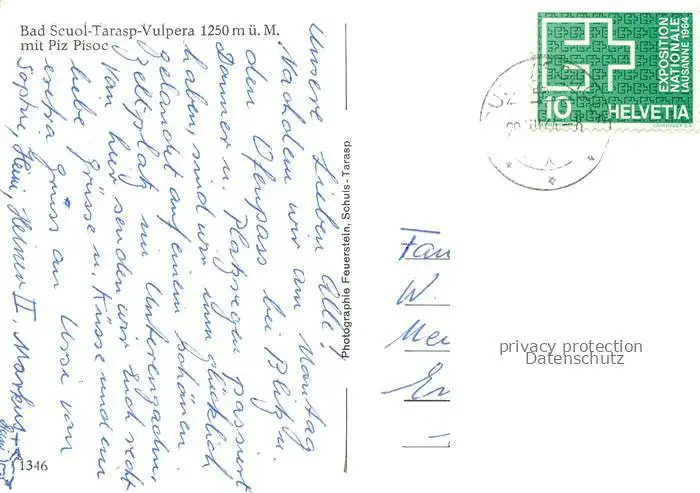 Bad Scuol-Tarasp-Vulpera 1250 m ü. M.
mit Piz Pisoc
Unsere Lieben Alle!
Nachdem wir am Montag
den Ofenpass bei Blitz u.
Donner u. Platzregen passiert
haben, sind wir nun glücklich
gelandet auf einem schönen
Zeltplatz im Unterengadin.
Von hier senden wir Euch recht
liebe Grüsse u. Küsse und ein
extra Gruss an Ursi von
Sophie, Heini, Heinen II. Markus +
1346
Photographie Feuerstein, Schuls-Tarasp
EXPOSITION
NATIONALE
LAUSANNE 1964
10 HELVETIA
Fam
W.
privacy protection
Datenschutz